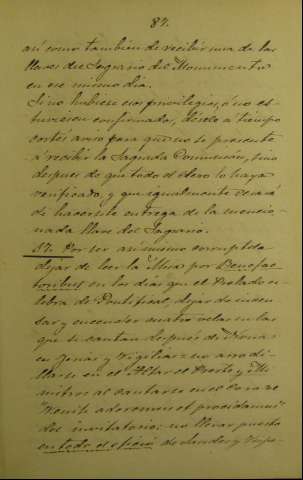 87.
así como también de recibir una de las
llaves del Sagrario del Monumento
en ese mismo dia.
Si no hubiese esos privilegios, ó no es-
tuviesen confirmados, désele á tiempo
cortés aviso para que no se presente
á recibir la Sagrada Comunion, sino
despues de que todo el clero lo haya
verificado, y que igualmente cesará
de hacersele entrega de la mencio-
nada llave del Sagrario.
37. Por ser asimismo corruptela
dejar de leer la Misa por Benefac-
toribus en los dias que el Prelado ce-
lebra de Pontifical, dejar de incen-
sar y encender cuatro velas en las
que se cantan después de Nonas
en Ferias y Vigilias: no arrodi-
llarse en el Altar el Preste y Mi-
nistros al cantarse en el Coro el
"Venite adoremus et procidamus"
del invitatorio: no llevar puesta
en todo el oficio de Laudes y Vispe-